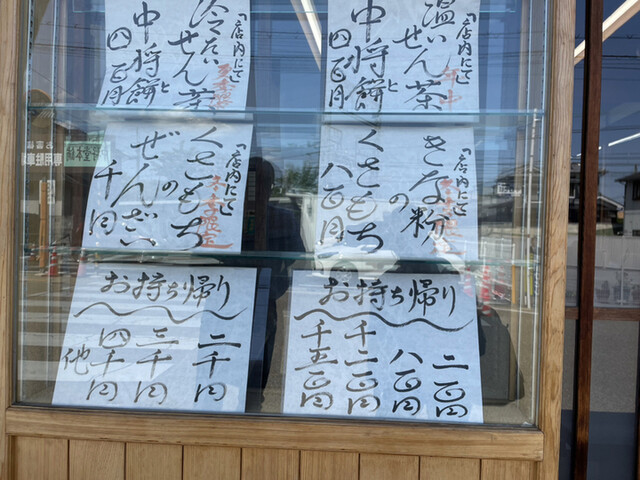 「店内にて
温いせん茶
と
中将餅
四百円
「店内にて
冷たいせん茶
と
中将餅
四百円
「店内にて
きな粉
の
くさもち
八百円
「店内にて
くさもち
の
ぜんざい
千円
お持ち帰り
二百円
八百円
千二百円
千五百円
お持ち帰り
二千円
三千円
四千円
他